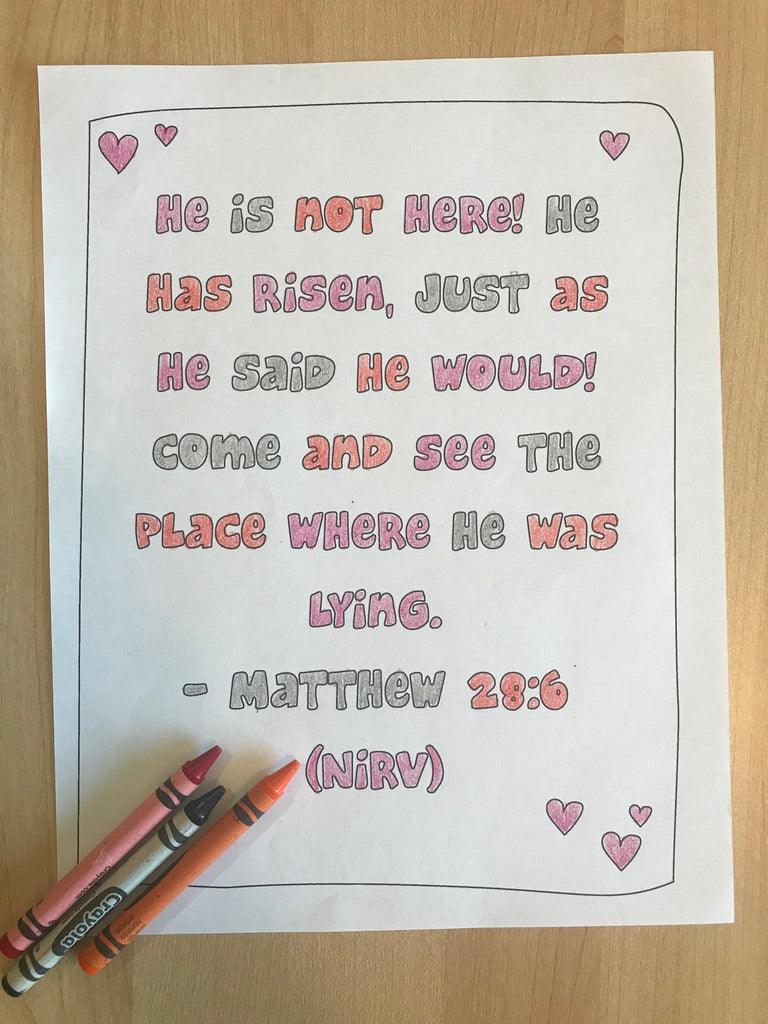 He is NOT Here! He
Has Risen, JUST as
He saiD He WOULD!
COme anD see THe
PLace WHeRe He Was
LYinG.
- MaTTHew 28:6
(NiRV)
Crayola